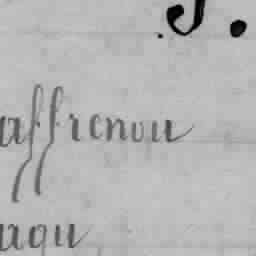 J.
affrenou
aqu